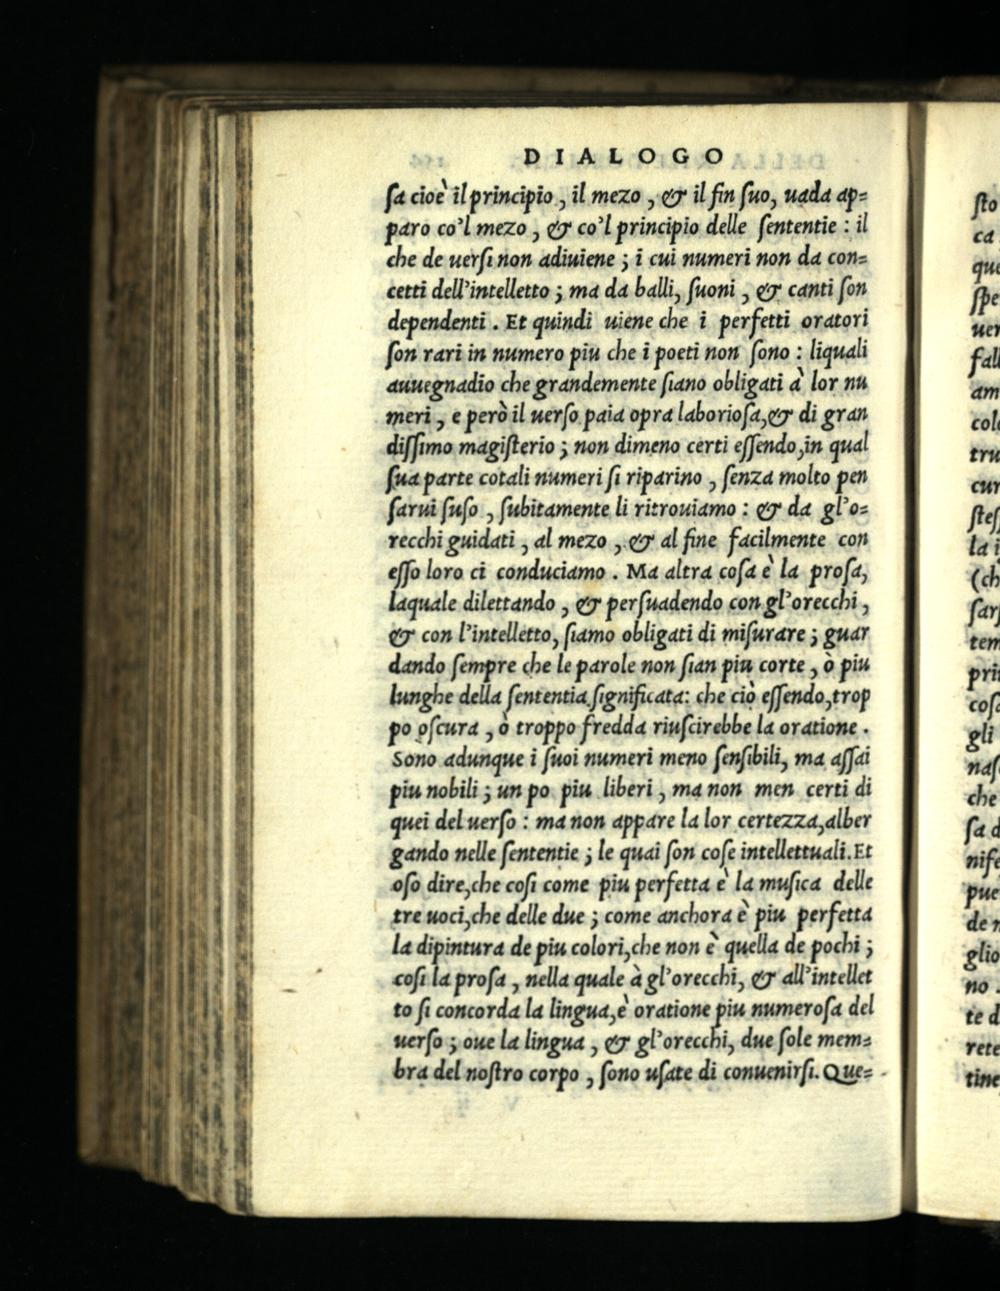 DIALOGO
ſa cioè il principio, il mezo, & il fin ſuo, uada ap=
paro co'l mezo, & co'l principio delle ſententie : il
che de uerſi non adiuiene ; i cui numeri non da con=
cetti dell'intelletto ; ma da balli, ſuoni, & canti ſon
dependenti. Et quindi uiene che i perfetti oratori
ſon rari in numero piu che i poeti non ſono : liquali
auuegnadio che grandemente ſiano obligati à lor nu
meri, e però il uerſo paia opra laborioſa, & di gran
diſſimo magiſterio ; non dimeno certi eſſendo, in qual
ſua parte cotali numeri ſi riparino, ſenza molto pen
ſarui ſuſo, ſubitamente li ritrouiamo : & da gl'o=
recchi guidati, al mezo, & al fine facilmente con
eſſo loro ci conduciamo. Ma altra coſa è la proſa,
laquale dilettando, & perſuadendo con gl'orecchi,
& con l'intelletto, ſiamo obligati di miſurare ; guar
dando ſempre che le parole non ſian piu corte, ò piu
lunghe della ſententia ſignificata: che ciò eſſendo, trop
po oſcura, ò troppo fredda riuſcirebbe la oratione.
Sono adunque i ſuoi numeri meno ſenſibili, ma aſſai
piu nobili ; un po piu liberi, ma non men certi di
quei del uerſo : ma non appare la lor certezza, alber
gando nelle ſententie ; le quai ſon coſe intellettuali. Et
oſo dire, che coſi come piu perfetta è la muſica delle
tre uoci, che delle due ; come anchora è piu perfetta
la dipintura de piu colori, che non è quella de pochi ;
coſi la proſa, nella quale à gl'orecchi, & all'intellet
to ſi concorda la lingua, è oratione piu numeroſa del
uerſo ; oue la lingua, & gl'orecchi, due ſole mem=
bra del noſtro corpo, ſono uſate di conuenirſi. Que=
ſto
ca
que
ſpe
uer
fall
am
colo
tru
cur
ſteſ
la i
(ch
ſarſ
tem
prin
coſa
gli
naſ
che
ſa d
nife
pue
de n
glio
no.
te d
rete
tine